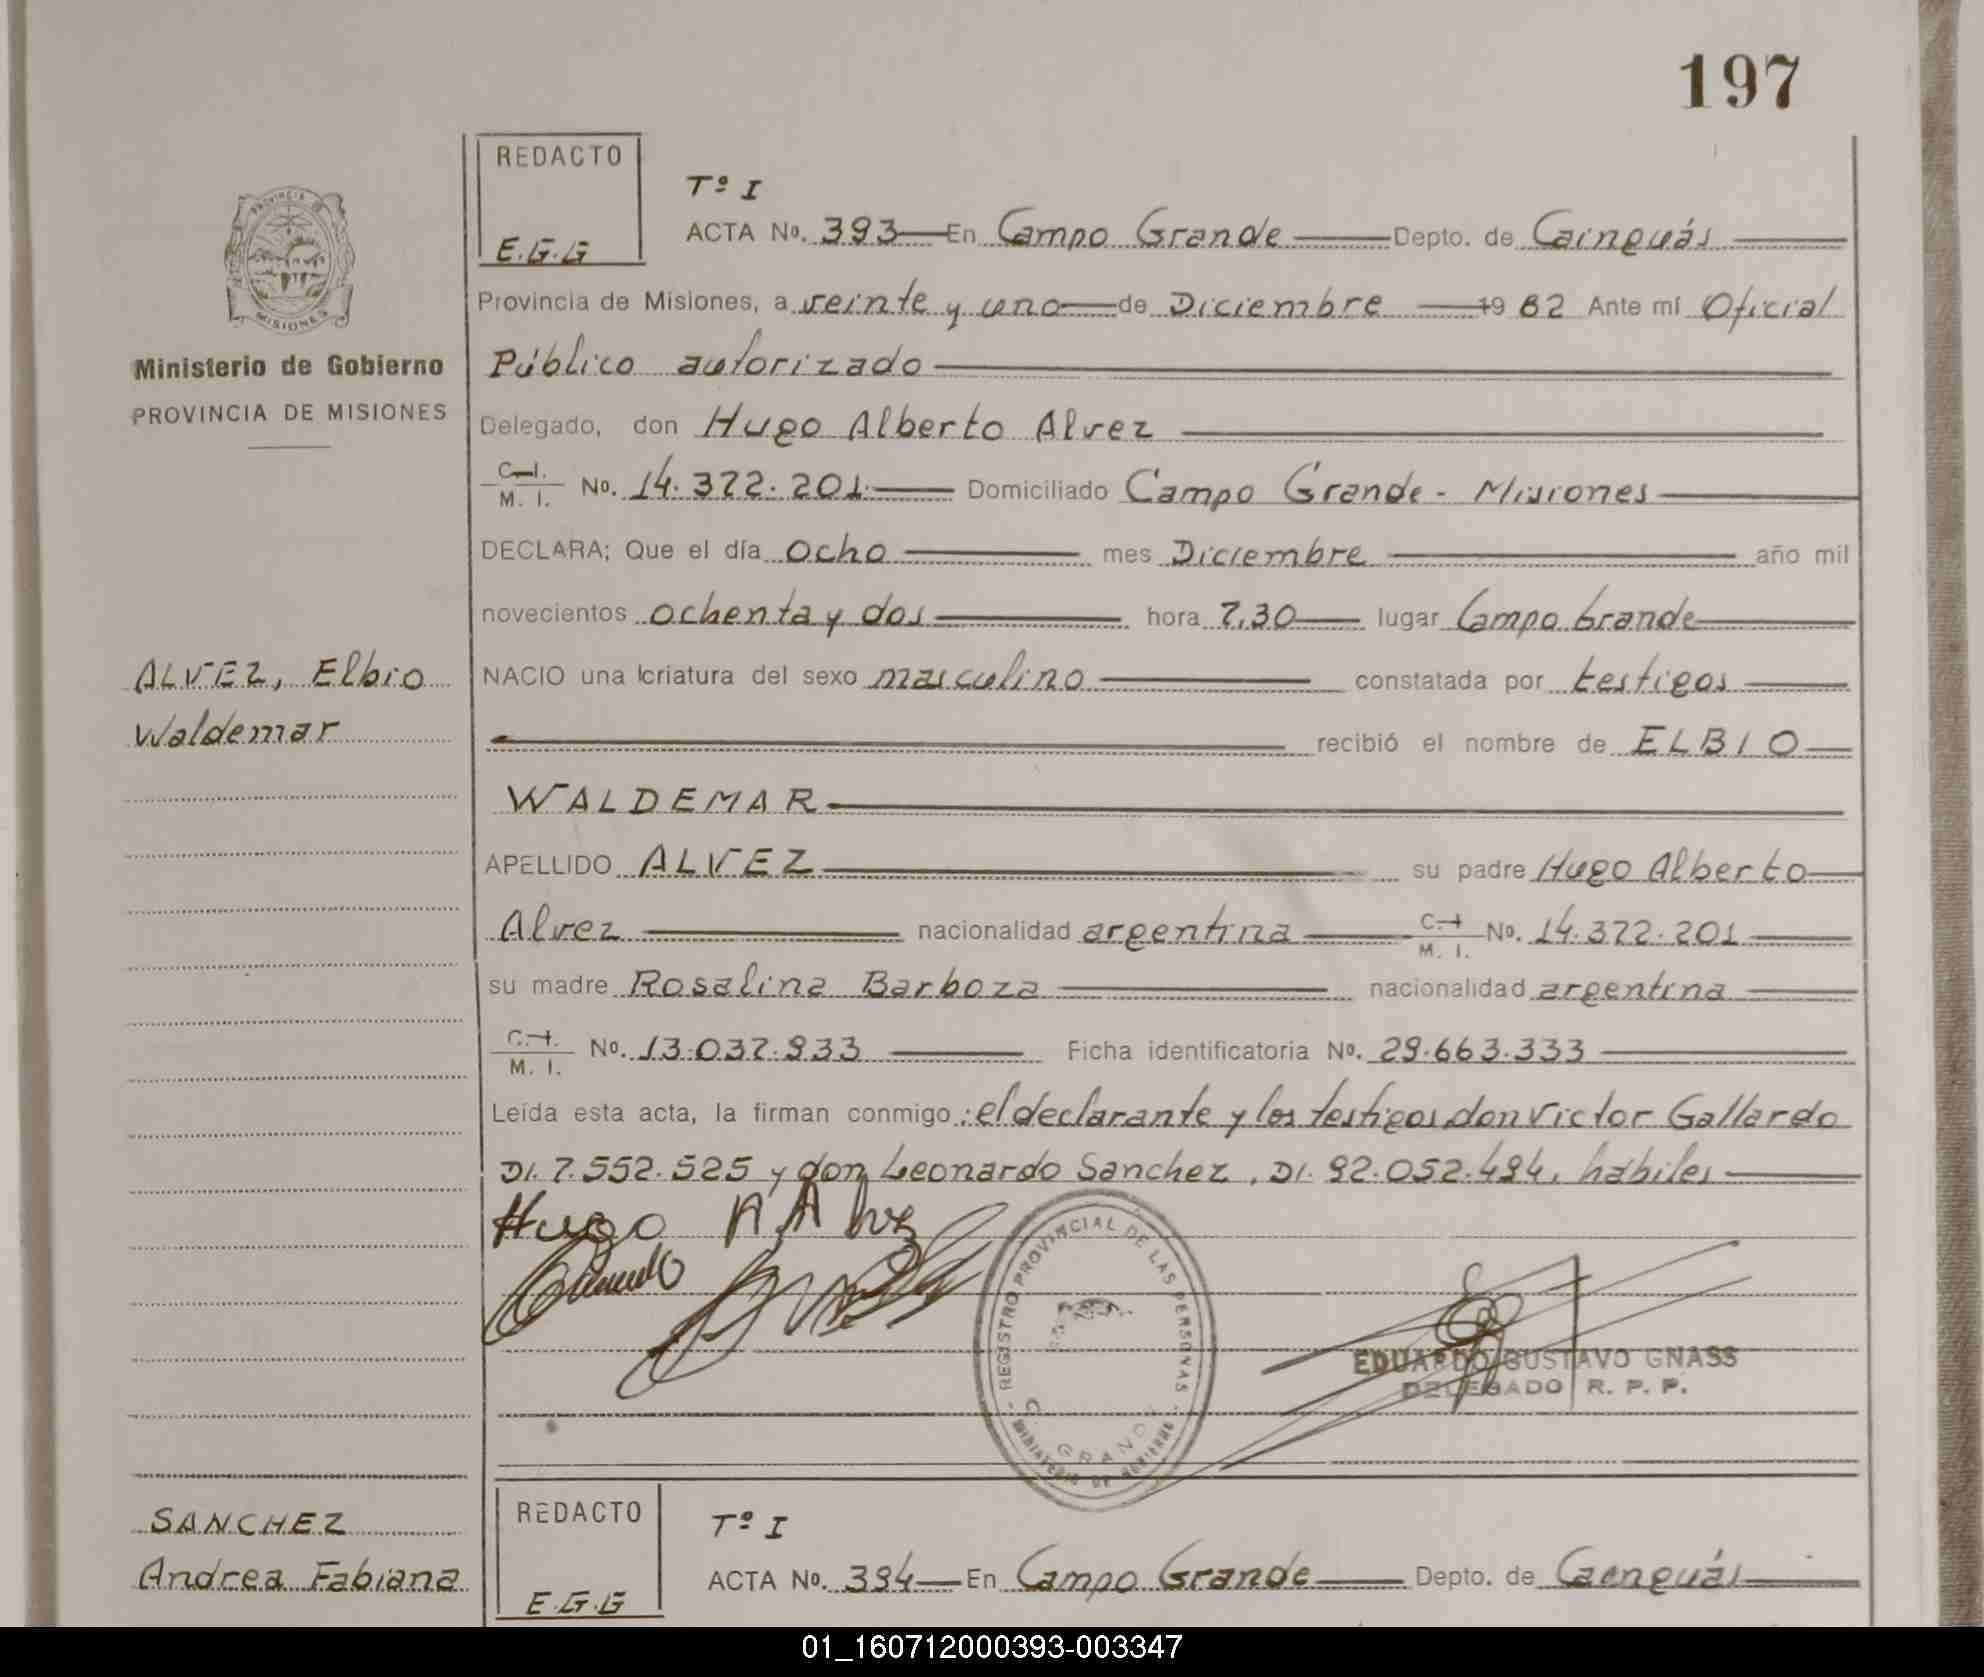 197
REDACTO
E.G.G
Tº I
ACTA Nº. 393 En Campo Grande Depto. de Cainguás
Provincia de Misiones, a veinte y uno de Diciembre 19 82 Ante mí Oficial
Público autorizado
Delegado, don Hugo Alberto Alvez
C. I.
M. I. Nº. 14.372.201 Domiciliado Campo Grande - Misiones
DECLARA; Que el día ocho mes Diciembre año mil
novecientos ochenta y dos hora 7,30 lugar Campo Grande
NACIO una criatura del sexo masculino constatada por testigos
recibió el nombre de ELBIO
WALDEMAR
APELLIDO ALVEZ su padre Hugo Alberto
Alvez nacionalidad argentina C. I. M. I. Nº. 14.372.201
su madre Rosalina Barboza nacionalidad argentina
C. I.
M. I. Nº. 13.037.933 Ficha identificatoria Nº. 29.663.333
Leída esta acta, la firman conmigo: el declarante y los testigos don Victor Gallardo
DI. 7.552.525 y don Leonardo Sanchez, DI. 92.052.494, hábiles
Hugo A. Alvez
REGISTRO PROVINCIAL DE LAS PERSONAS
MINISTERIO DE GOBIERNO
GRANDE
EDUARDO GUSTAVO GNASS
DELEGADO R. P. P.
PROVINCIA DE
MISIONES
Ministerio de Gobierno
PROVINCIA DE MISIONES
ALVEZ, Elbio
Waldemar
SANCHEZ
Andrea Fabiana
REDACTO
E.G.G
Tº I
ACTA Nº. 394 En Campo Grande Depto. de Cainguás
01_160712000393-003347